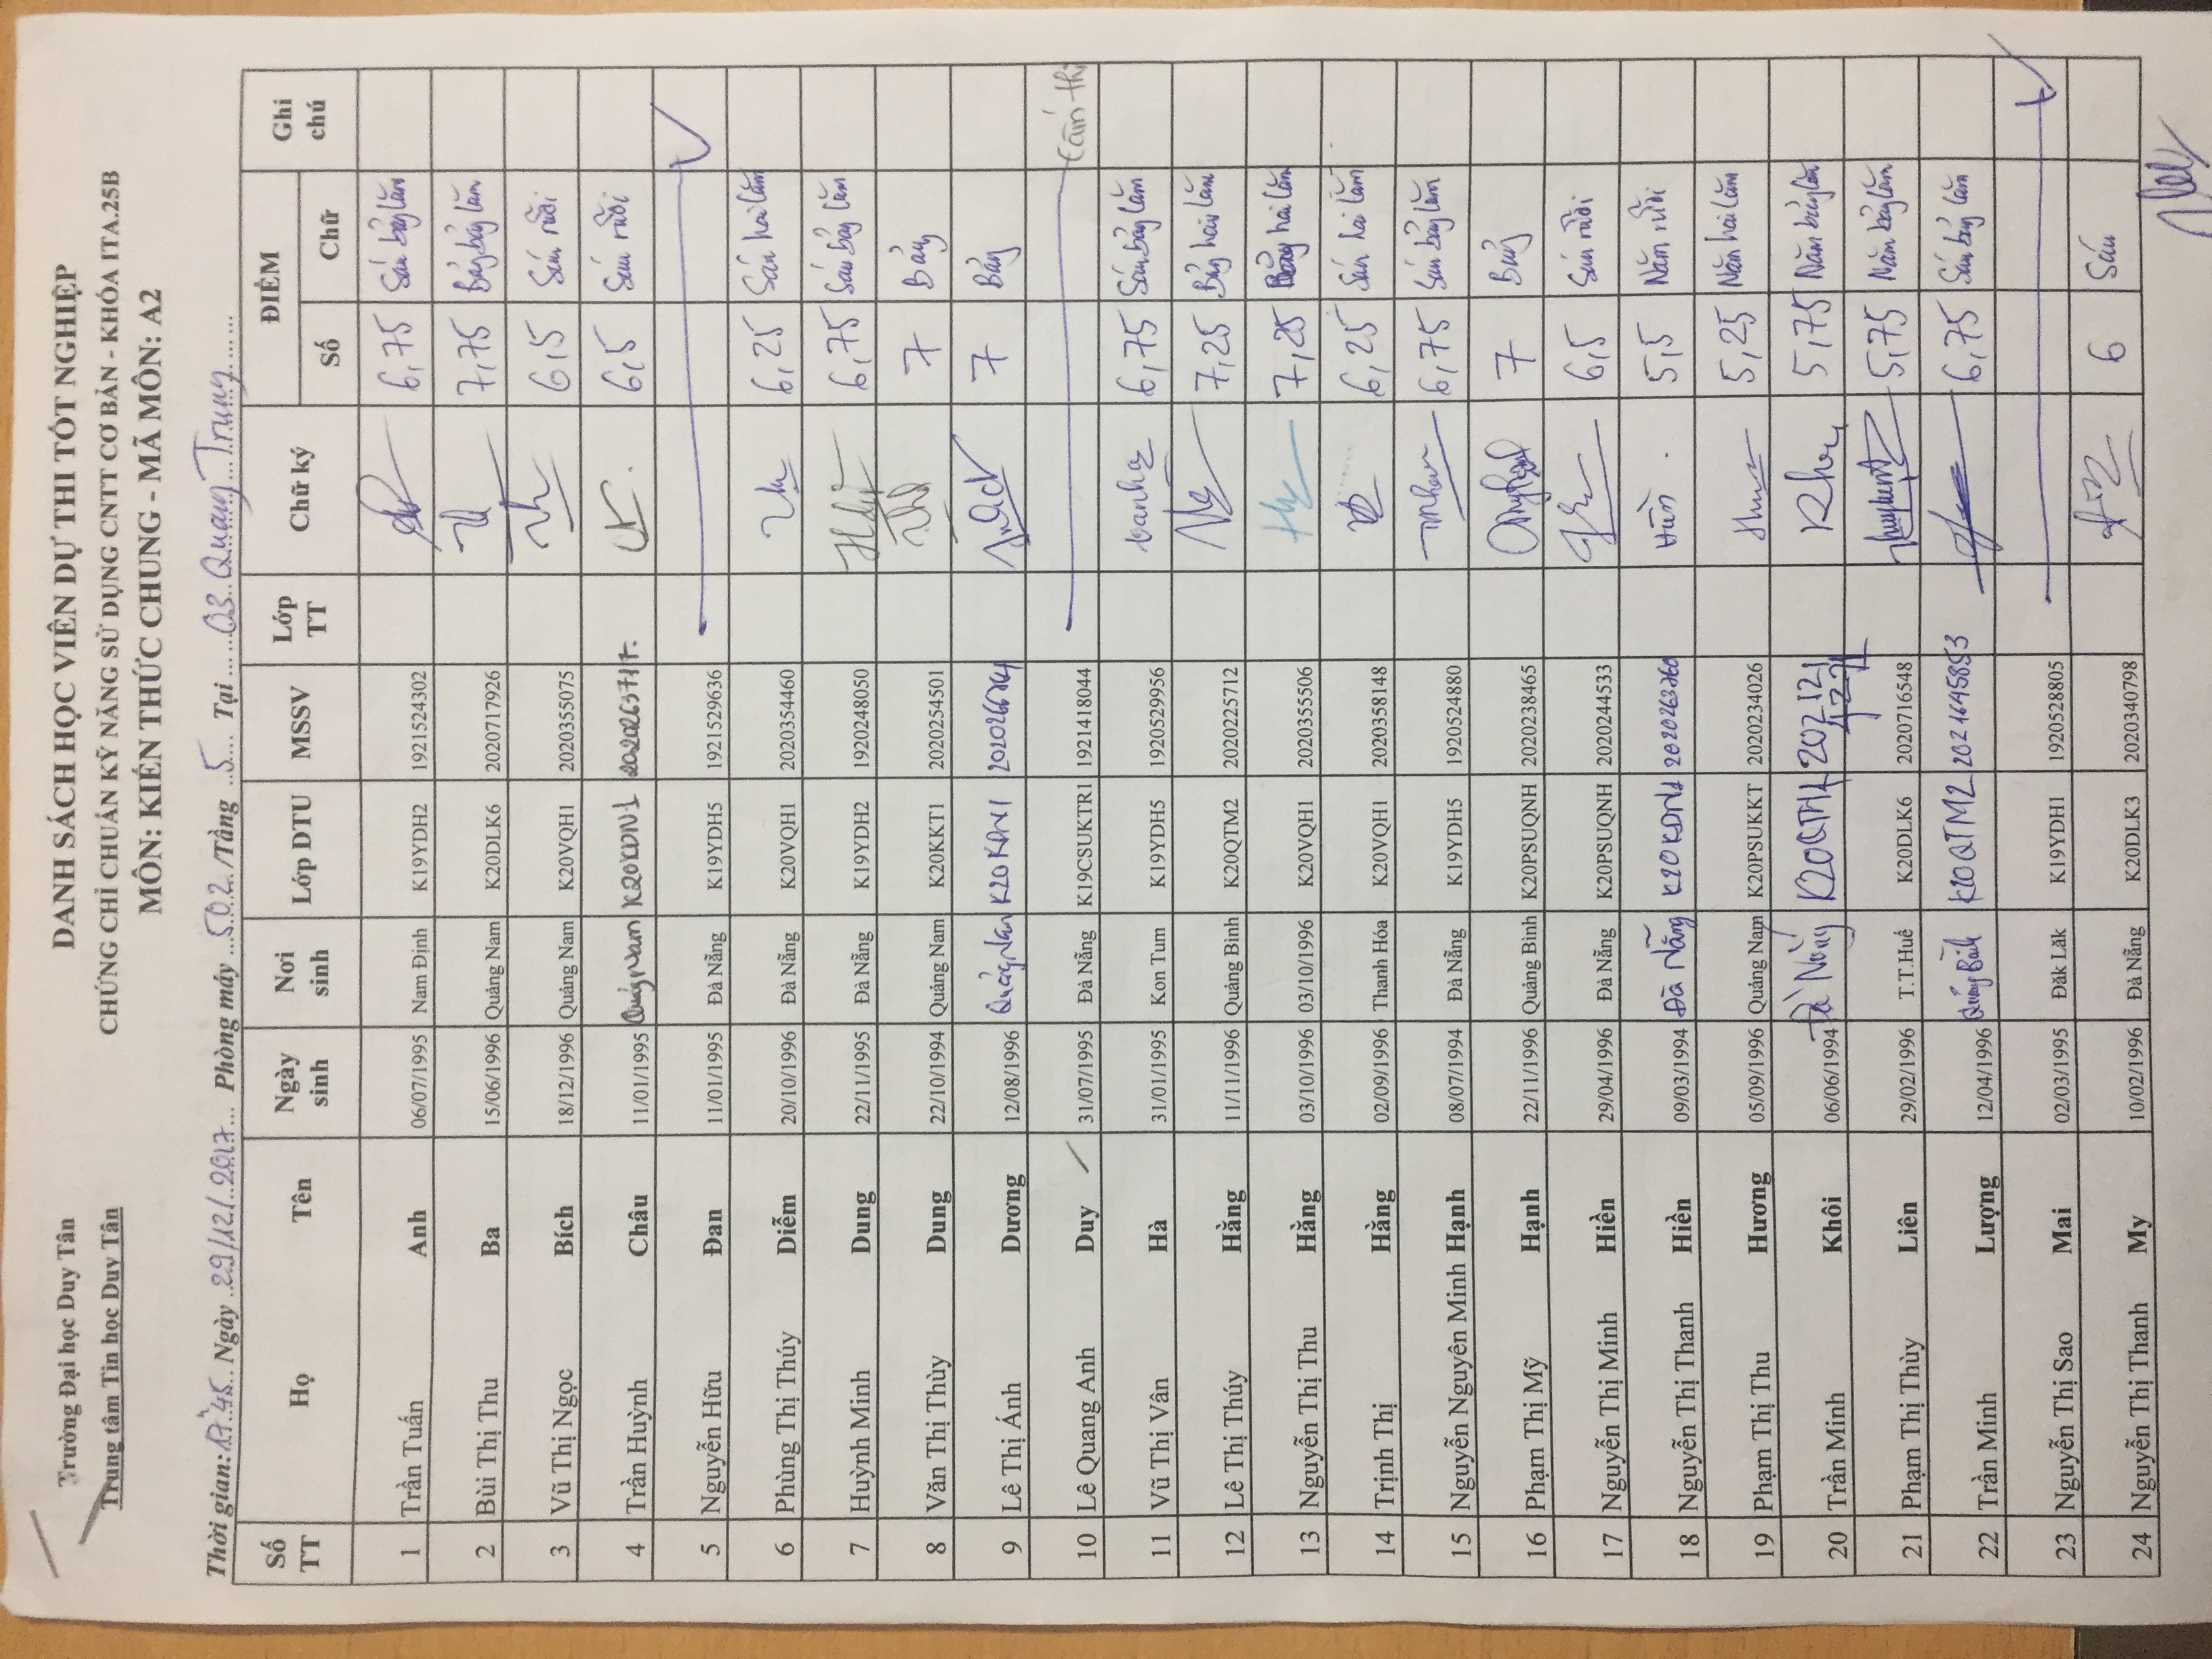 Trường Đại học Duy Tân
Trung tâm Tin học Duy Tân
DANH SÁCH HỌC VIÊN DỰ THI TỐT NGHIỆP
CHỨNG CHỈ CHUẨN KỸ NĂNG SỬ DỤNG CNTT CƠ BẢN - KHÓA ITA.25B
MÔN: KIẾN THỨC CHUNG - MÃ MÔN: A2
Thời gian: 17h45 Ngày 29/12/2017 Phòng máy 502/Tầng 5 Tại 03 Quang Trung
Số TT Họ Tên Ngày sinh Nơi sinh Lớp DTU MSSV Lớp TT Chữ ký ĐIỂM Ghi chú
Số Chữ
1 Trần Tuấn Anh 06/07/1995 Nam Định K19YDH2 1921524302 6,75 Sáu bảy lăm
2 Bùi Thị Thu Ba 15/06/1996 Quảng Nam K20DLK6 2020717926 7,75 Bảy bảy lăm
3 Vũ Thị Ngọc Bích 18/12/1996 Quảng Nam K20VQH1 2020355075 6,5 Sáu rưỡi
4 Trần Huỳnh Châu 11/01/1995 Quảng Nam K20KDN1 6,5 Sáu rưỡi
5 Nguyễn Hữu Đan 11/01/1995 Đà Nẵng K19YDH5 1921529636
6 Phùng Thị Thúy Diễm 20/10/1996 Đà Nẵng K20VQH1 2020354460 6,25 Sáu hai lăm
7 Huỳnh Minh Dung 22/11/1995 Đà Nẵng K19YDH2 1920248050 6,75 Sáu bảy lăm
8 Văn Thị Thùy Dung 22/10/1994 Quảng Nam K20KKT1 2020254501 7 Bảy
9 Lê Thị Ánh Dương 12/08/1996 Quảng Nam K20KDN1 7 Bảy
10 Lê Quang Anh Duy 31/07/1995 Đà Nẵng K19CSUKTR1 1921418044 Cấm thi
11 Vũ Thị Vân Hà 31/01/1995 Kon Tum K19YDH5 1920529956 6,75 Sáu bảy lăm
12 Lê Thị Thúy Hằng 11/11/1996 Quảng Bình K20QTM2 2020225712 7,25 Bảy hai lăm
13 Nguyễn Thị Thu Hằng 03/10/1996 03/10/1996 K20VQH1 2020355506 7,25 Bảy hai lăm
14 Trịnh Thị Hằng 02/09/1996 Thanh Hóa K20VQH1 2020358148 6,25 Sáu hai lăm
15 Nguyễn Nguyên Minh Hạnh 08/07/1994 Đà Nẵng K19YDH5 1920524880 6,75 Sáu bảy lăm
16 Phạm Thị Mỹ Hạnh 22/11/1996 Quảng Bình K20PSUQNH 2020238465 7 Bảy
17 Nguyễn Thị Minh Hiền 29/04/1996 Đà Nẵng K20PSUQNH 2020244533 6,5 Sáu rưỡi
18 Nguyễn Thị Thanh Hiền 09/03/1994 Đà Nẵng K20KDN1 Hiền 5,5 Năm rưỡi
19 Phạm Thị Thu Hương 05/09/1996 Quảng Nam K20PSUKKT 2020234026 5,25 Năm hai lăm
20 Trần Minh Khôi 06/06/1994 Đà Nẵng 5,75 Năm bảy lăm
21 Phạm Thị Thùy Liên 29/02/1996 T.T.Huế K20DLK6 2020716548 5,75 Năm bảy lăm
22 Trần Minh Lượng 12/04/1996 Quảng Bình K20QTM2 2021645853 6,75 Sáu bảy lăm
23 Nguyễn Thị Sao Mai 02/03/1995 Đăk Lăk K19YDH1 1920528805
24 Nguyễn Thị Thanh My 10/02/1996 Đà Nẵng K20DLK3 2020340798 6 Sáu